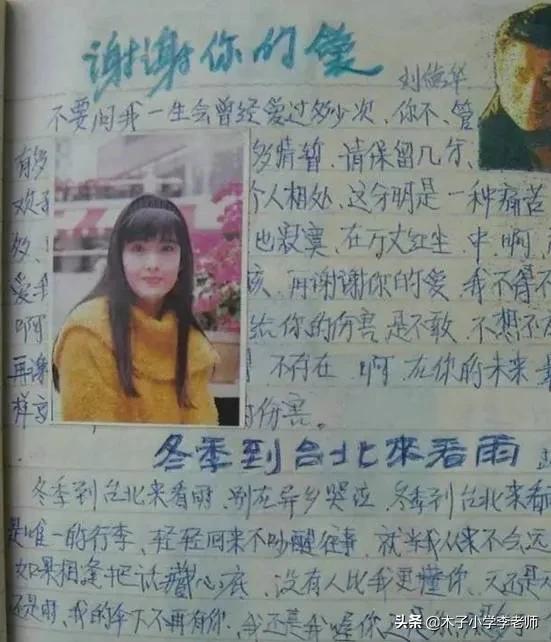 谢谢你的爱
刘德华
不要问我一生会曾经爱过多少次、你不、管
有多 多情暂、请保留几分、
欢 个人相处、这分明是一种痛苦
多、 也寂寞、在万丈红尘、中、啊、
爱我 再谢谢你的爱、我不得不
啊 给你的伤害是不敢、不想不
再谢 不存在、啊、在你的未来
样 的伤害。
冬季到台北來看雨
冬季到台北来看雨、别在异乡哭泣、冬季到台北来看
是唯一的行李、轻轻回来不吵醒往事、就当我从来不会远
如果相逢把话藏心底、没有人比我更懂你、天还是
还是雨、我的伞下不再有你、我还是
头条 @木子小学李老师